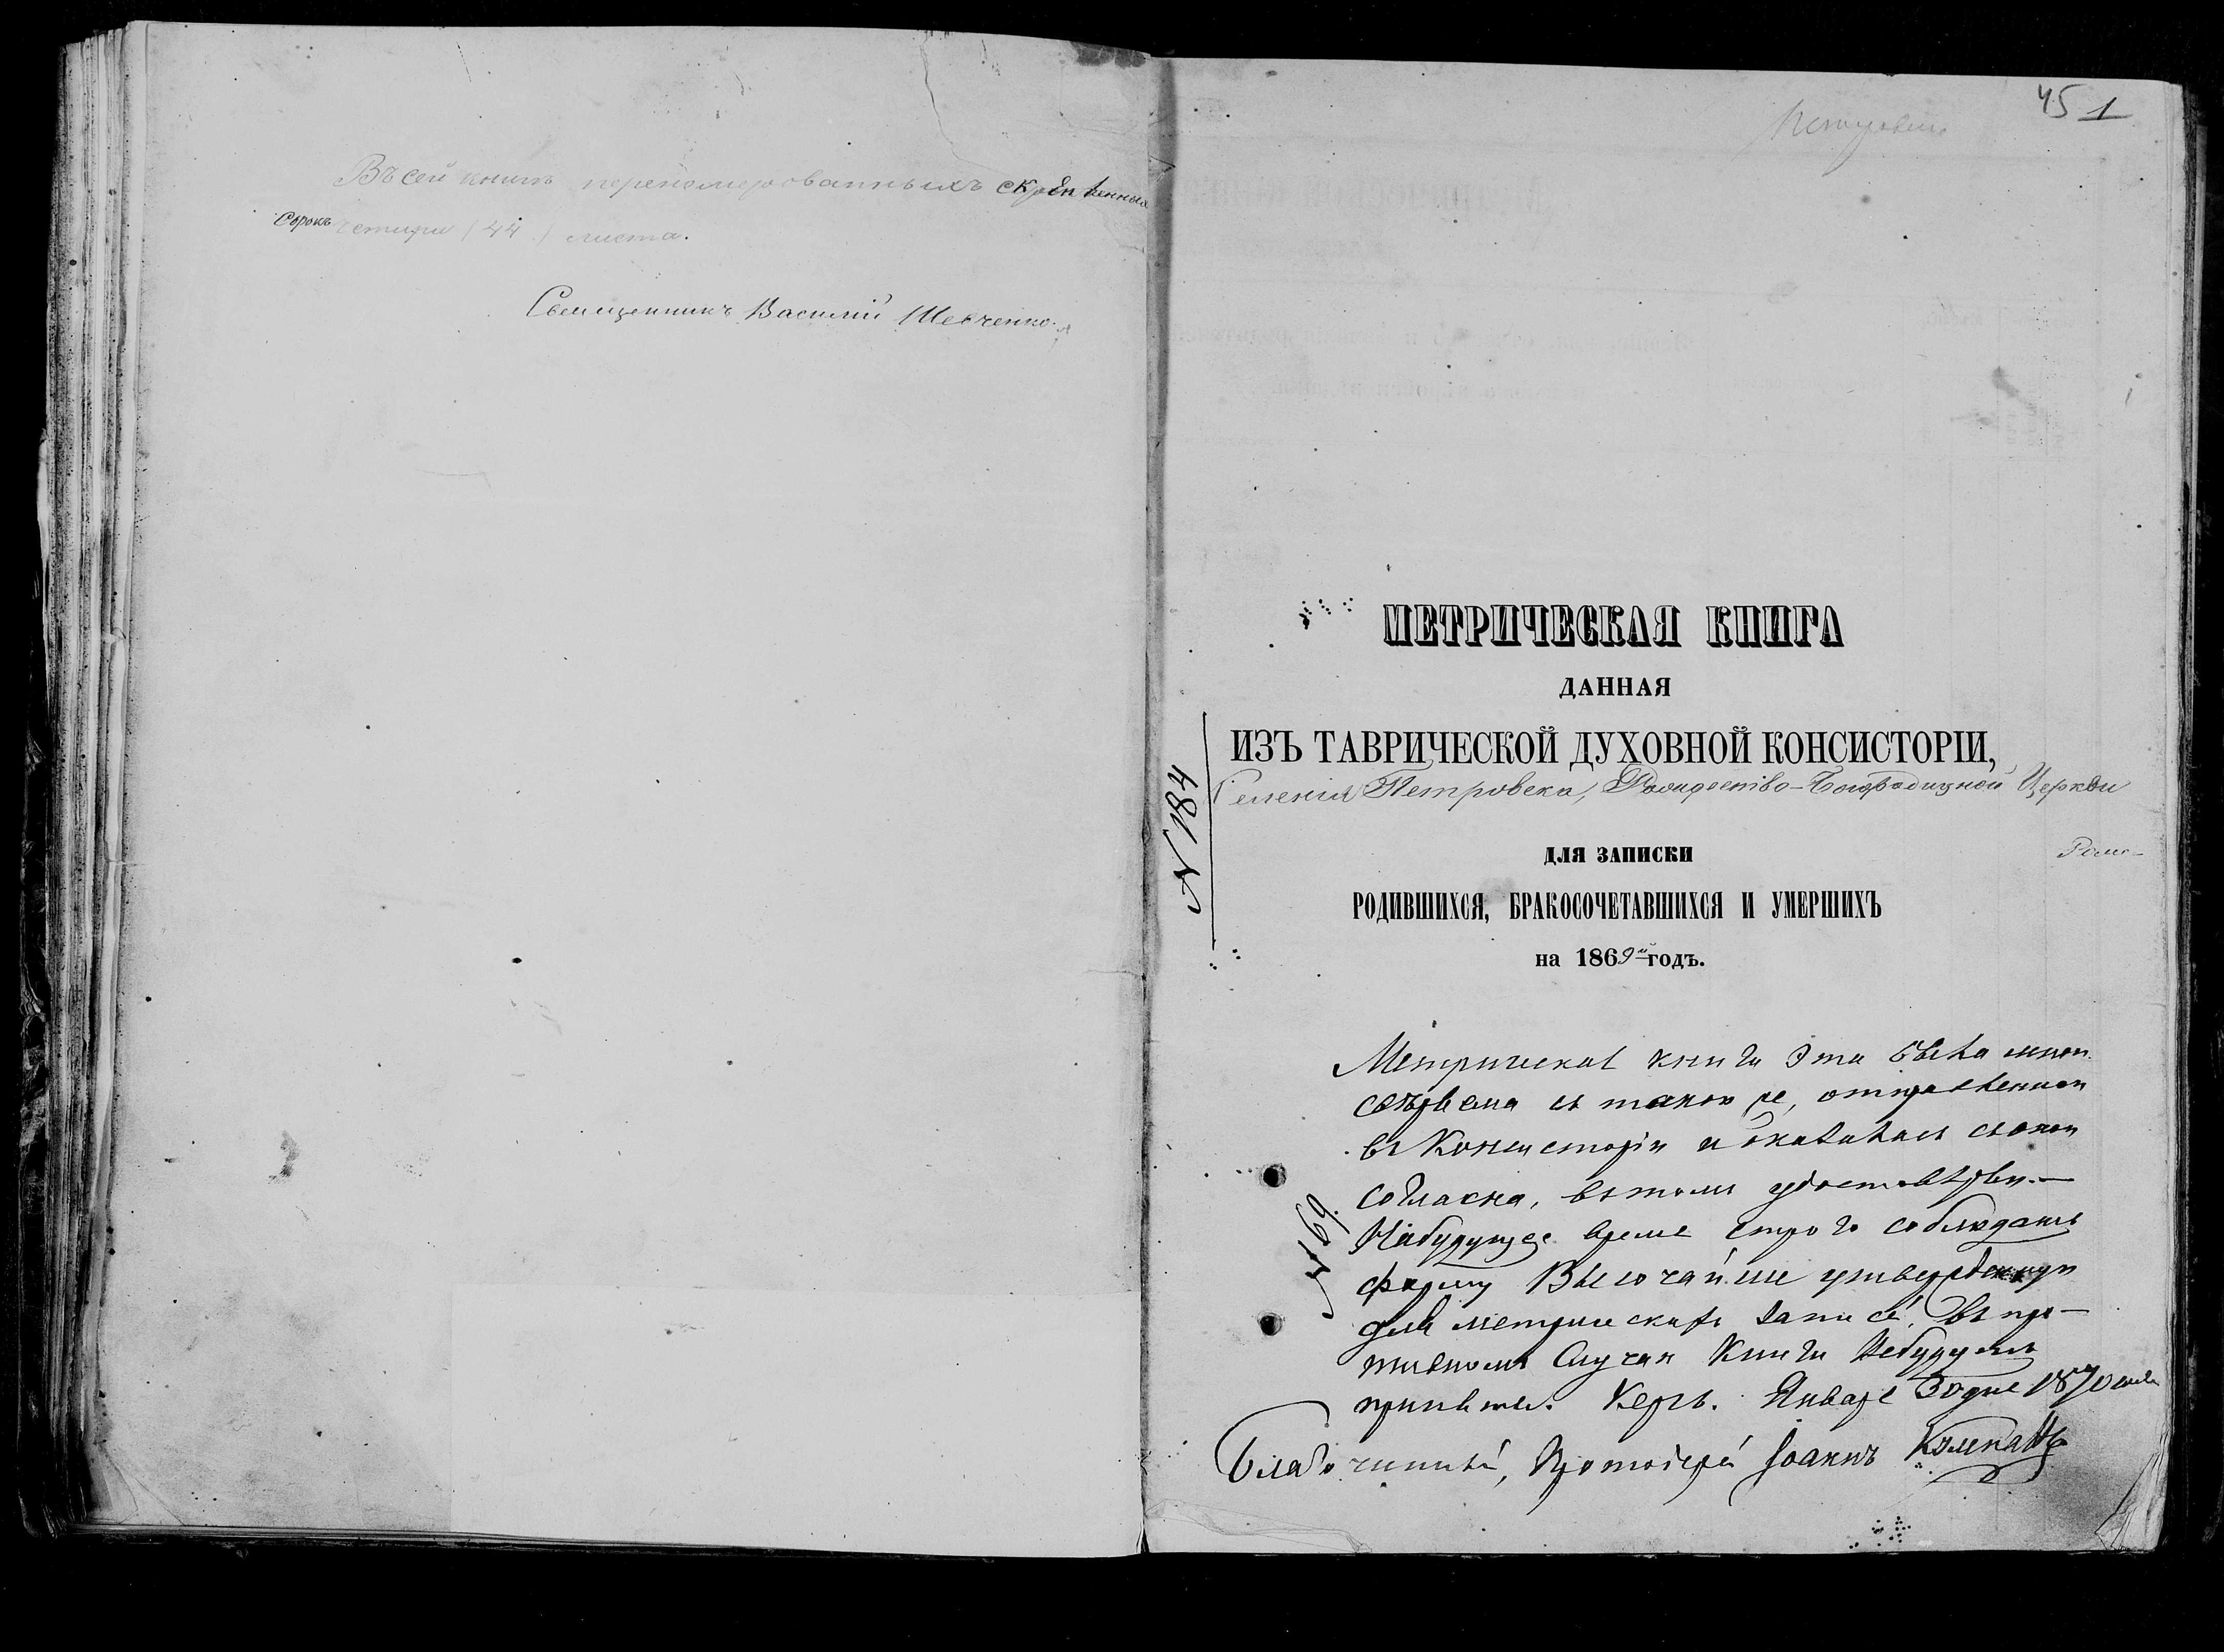 Въ сей книгѣ перенумерованныхъ скрѣпленныхъ
сорокъ четыри (44) листа.
Священникъ Василій Шевченко.
45 1
МЕТРИЧЕСКАЯ КНИГА
ДАННАЯ
ИЗЪ ТАВРИЧЕСКОЙ ДУХОВНОЙ КОНСИСТОРІИ,
Селенія Петровска, Рождество-Богородицной Церкви
№ 184
ДЛЯ ЗАПИСКИ
РОДИВШИХСЯ, БРАКОСОЧЕТАВШИХСЯ И УМЕРШИХЪ
на 1869й годъ.
Метрическая книга эта была мною
свѣрена съ такою же, отправленною
въ Консисторію и оказалась съ оною
согласна, въ томъ удостовѣряю.—
№ 69.
Набудущее время строго соблюдать
форму Высочайше утвержденную
для метрическихъ записей, въ про-
тивномъ случаѣ книги небудутъ
приняты. Января 30 дня 1870 года
Благочинный, Протоіерей Іоаннъ